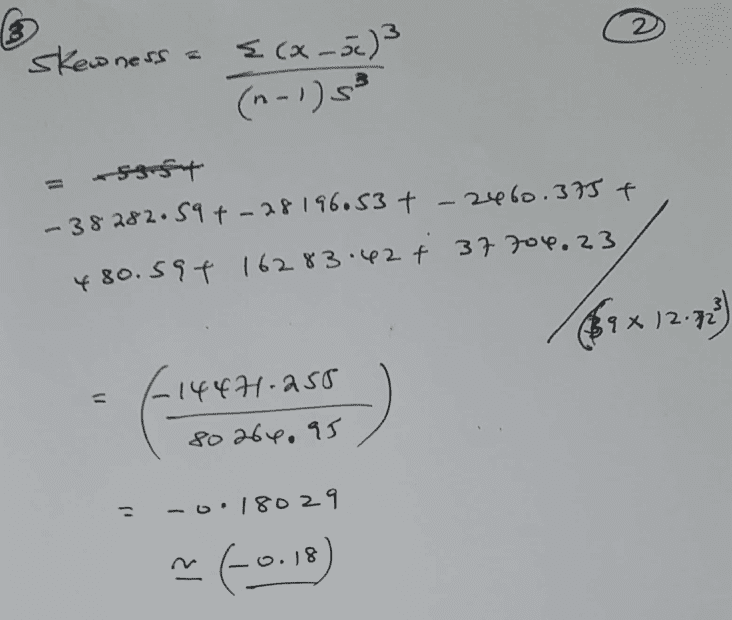 ③ ②
Skewness = Σ(x - x̄)³ / (n-1) s³
=
-38282.59 + -28196.53 + -2460.375 +
480.59 + 16283.42 + 37704.23 / (39 × 12.72³)
= (-14471.255 / 80264.95)
= -0.18029
≃ (-0.18)